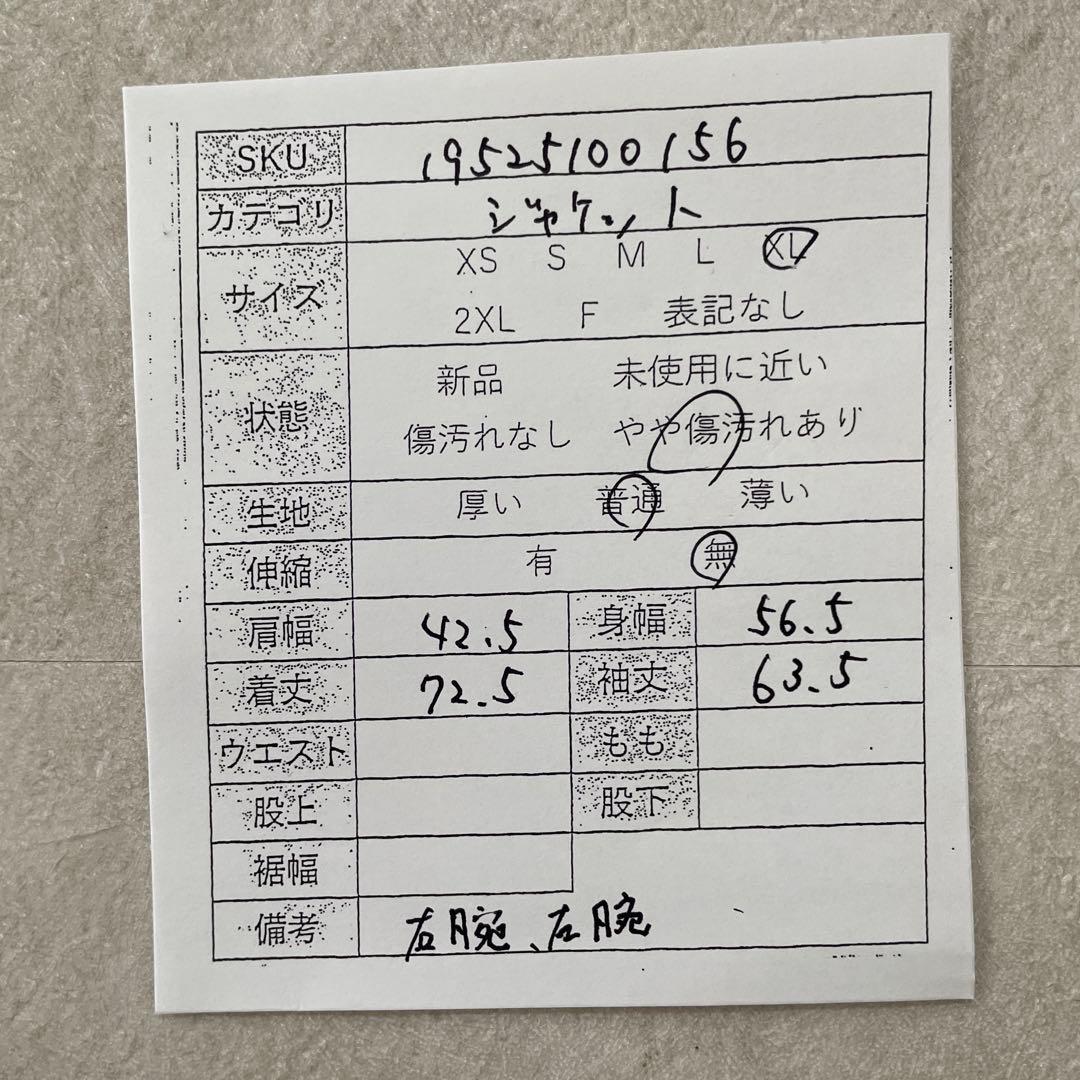 SKU 19525100156
カテゴリ ジャケット
サイズ XS S M L XL
2XL F 表記なし
状態 新品 未使用に近い
傷汚れなし やや傷汚れあり
生地 厚い 普通 薄い
伸縮 有 無
肩幅 42.5 身幅 56.5
着丈 72.5 袖丈 63.5
ウエスト もも
股上 股下
裾幅
備考 右腕、左腕